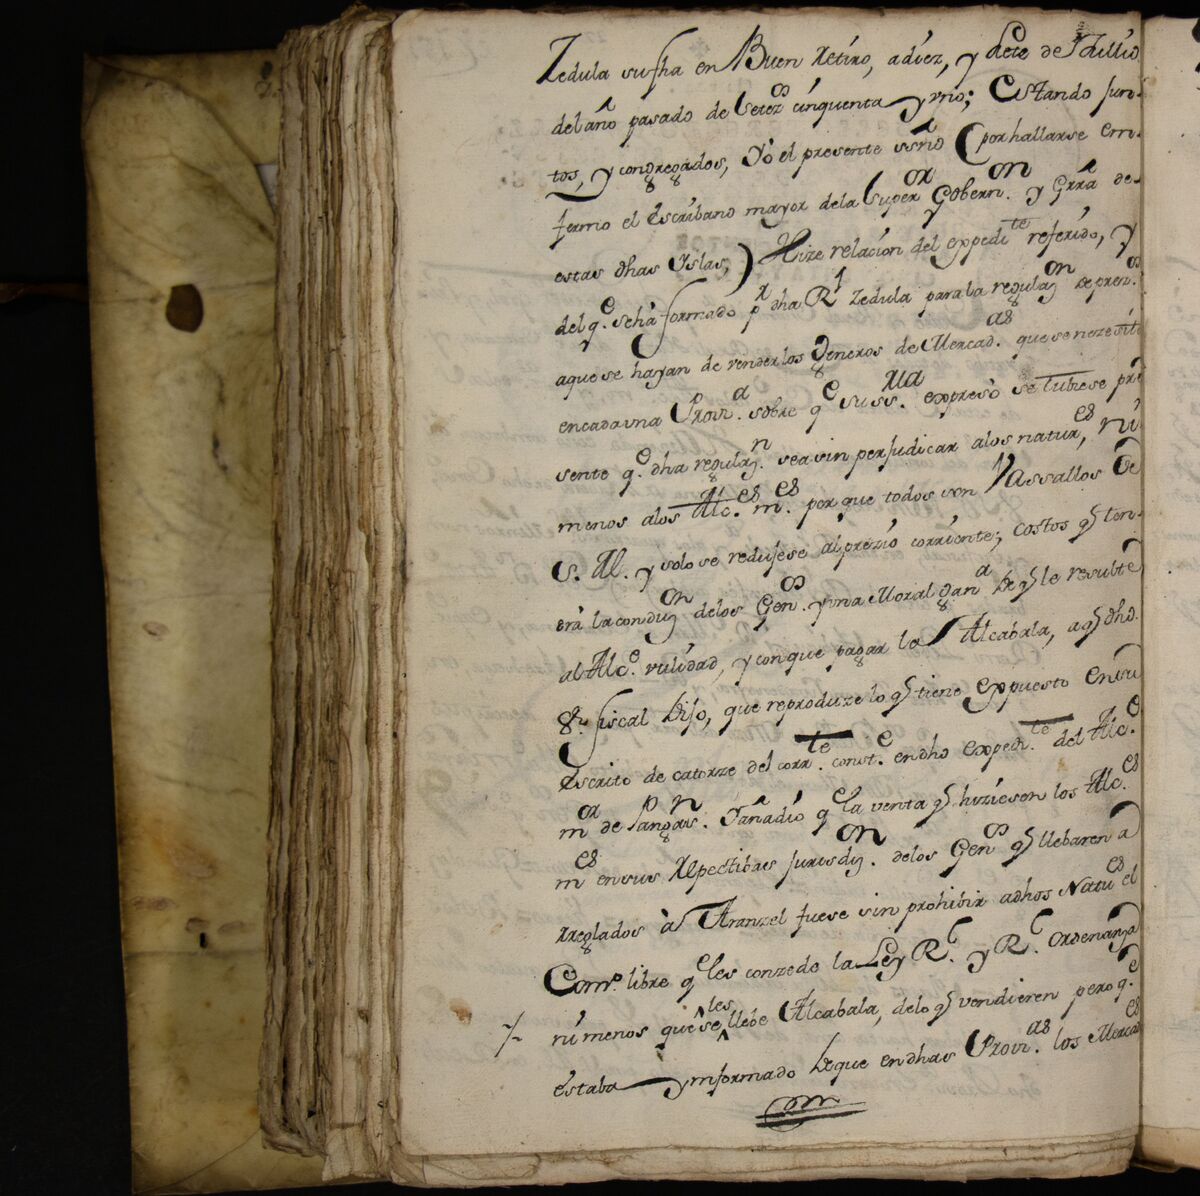 Zedula su fha en Buen Retiro, a diez, y Siete de Jullio
del año pasado de Setez.os cinquenta y uno; Estando jun-
tos, y congregados, Yo el presente ssño (por hallarse em-
fermo el Escribano mayor dela Super.or Gobern.on y Grrã de-
estas dhas Yslas,) Hize relacion del expedi.te referido, y
del q.e sehà formado p.r dha R.l Zedula para la regulaz.on de prez.os
aque se hayan de vender los Generos de Mercad.as que se nezesite
encada una Provi.a sobre q.e su ss.ria expresò se tubiese pre
sente q.e dha regulaz.n sea sin perjudicar alos natur.es, ni
menos alos Alc.es m.es porque todos son Vassallos de
S. M. y solo se redujese alprezio corriente; costos q̃ ten-
drà la conduz.on delos Gen.os y una Moral ganz.a de q̃ le resulte
al Alc.e utilidad, y conque pagar la Alcabala, a q̃ dho.
S.r fiscal Dijo, que reproduze lo q̃ tiene expuesto ensu
Escrito de catorze del corr.te const.e en dho expedi.te del Alc.e
m.or de Pangas.n Yañadiò q.e la venta q̃ hiziesen los Alc.es
m.es en sus respectibas jurisdiz.on delos Gen.os q̃ llebaren a
rreglados à Aranzel fuese sin prohibir adhos Natu.es el
Com.o libre q.e les conzede la Ley R.l y R.l Ordenanza
·/· ni menos que se les llebe Alcabala, delo q̃ vendieren pero q.e
estaba ynformado de que en dhas Provi.as los Mercad.es